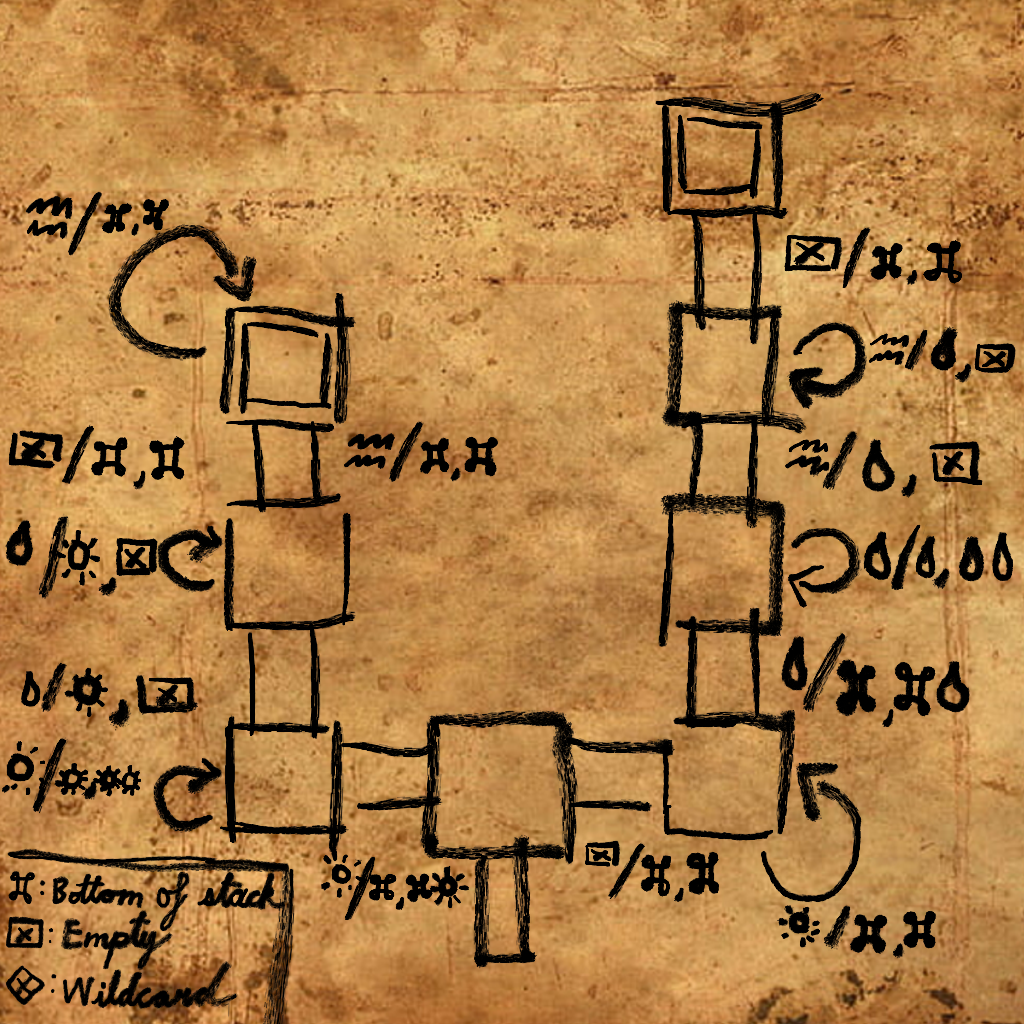 ⌘: Bottom of stack
☒: Empty
: Wildcard